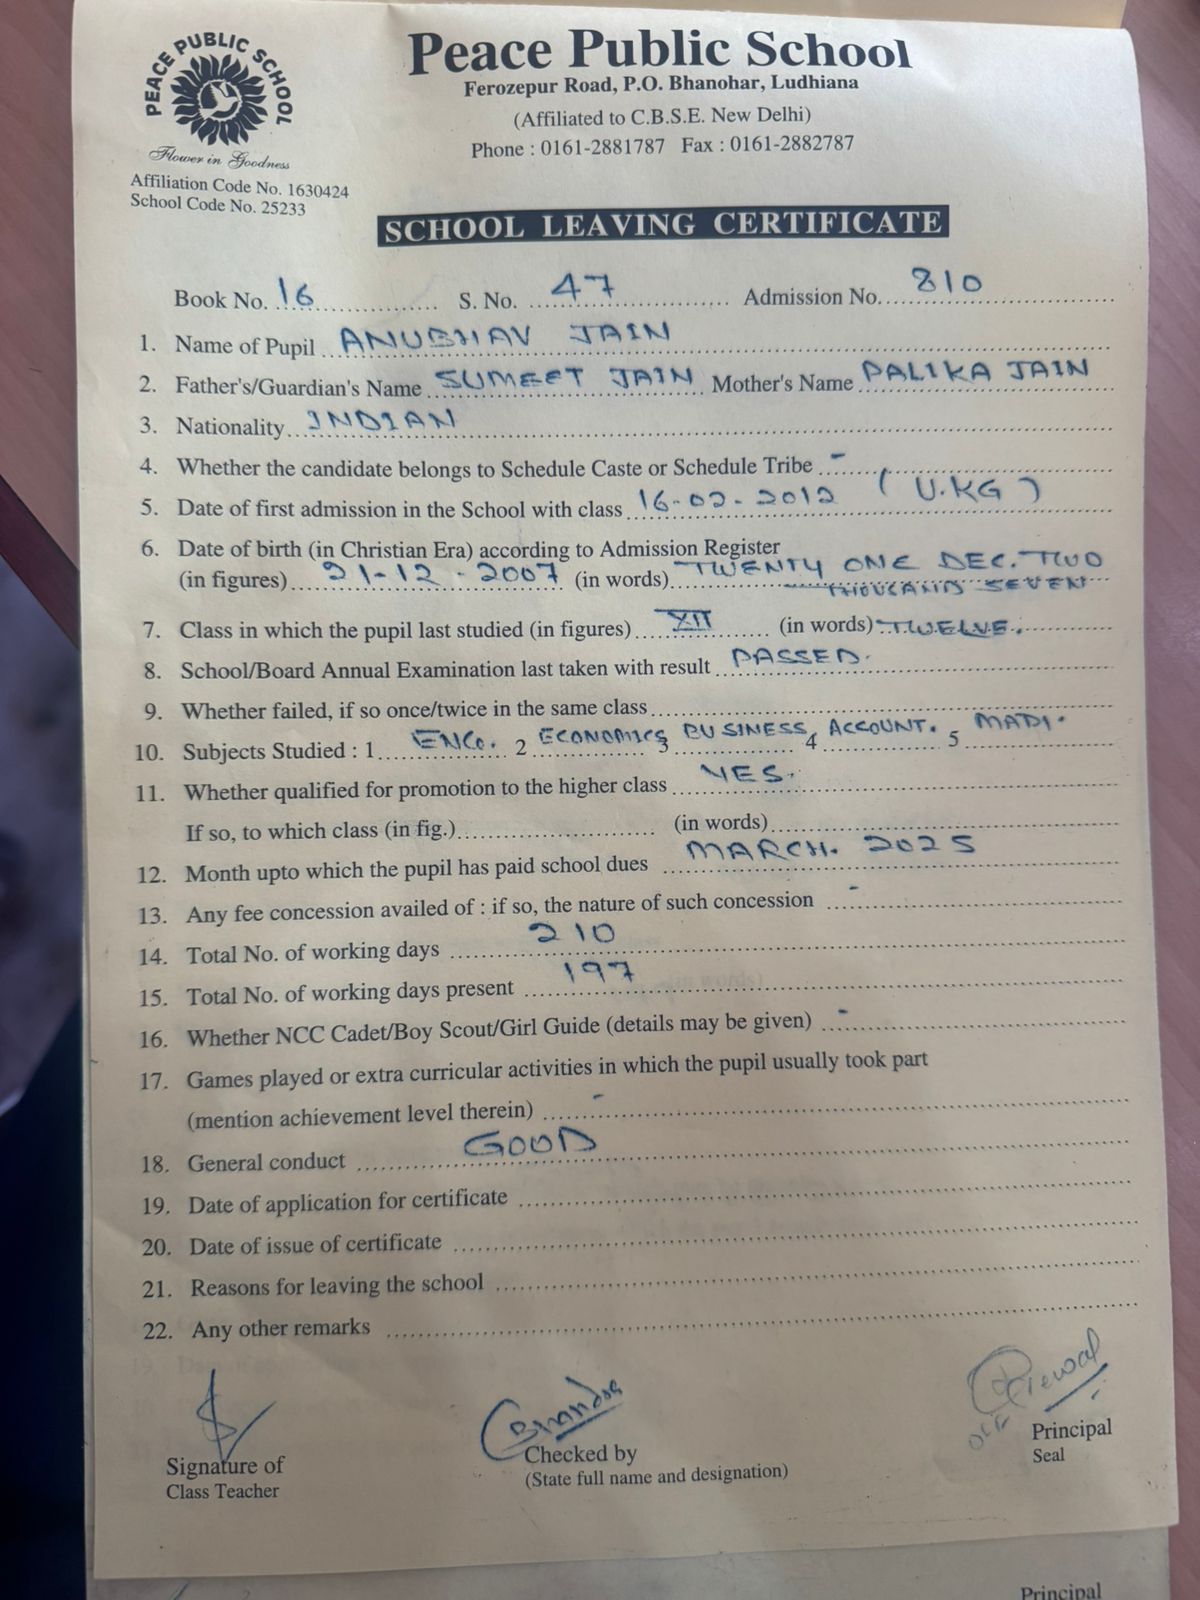 PEACE PUBLIC SCHOOL
Flower in Goodness
Affiliation Code No. 1630424
School Code No. 25233
Peace Public School
Ferozepur Road, P.O. Bhanohar, Ludhiana
(Affiliated to C.B.S.E. New Delhi)
Phone : 0161-2881787 Fax : 0161-2882787
SCHOOL LEAVING CERTIFICATE
Book No. 16 S. No. 47 Admission No. 810
1. Name of Pupil ANUBHAV JAIN
2. Father's/Guardian's Name SUMEET JAIN Mother's Name PALIKA JAIN
3. Nationality INDIAN
4. Whether the candidate belongs to Schedule Caste or Schedule Tribe -
5. Date of first admission in the School with class 16-02-2012 (U.KG)
6. Date of birth (in Christian Era) according to Admission Register
(in figures) 21-12-2007 (in words) TWENTY ONE DEC. TWO
THOUSAND SEVEN
7. Class in which the pupil last studied (in figures) XII (in words) TWELVE.
8. School/Board Annual Examination last taken with result PASSED.
9. Whether failed, if so once/twice in the same class
10. Subjects Studied : 1 ENG. 2 ECONOMICS 3 BUSINESS 4 ACCOUNT. 5
11. Whether qualified for promotion to the higher class YES.
If so, to which class (in fig.) (in words)
12. Month upto which the pupil has paid school dues MARCH. 2025
13. Any fee concession availed of : if so, the nature of such concession -
14. Total No. of working days 210
15. Total No. of working days present 197
16. Whether NCC Cadet/Boy Scout/Girl Guide (details may be given) -
17. Games played or extra curricular activities in which the pupil usually took part
(mention achievement level therein) -
18. General conduct GOOD
19. Date of application for certificate
20. Date of issue of certificate
21. Reasons for leaving the school
22. Any other remarks
Signature of
Class Teacher
Checked by
(State full name and designation)
Principal
Seal
Principal